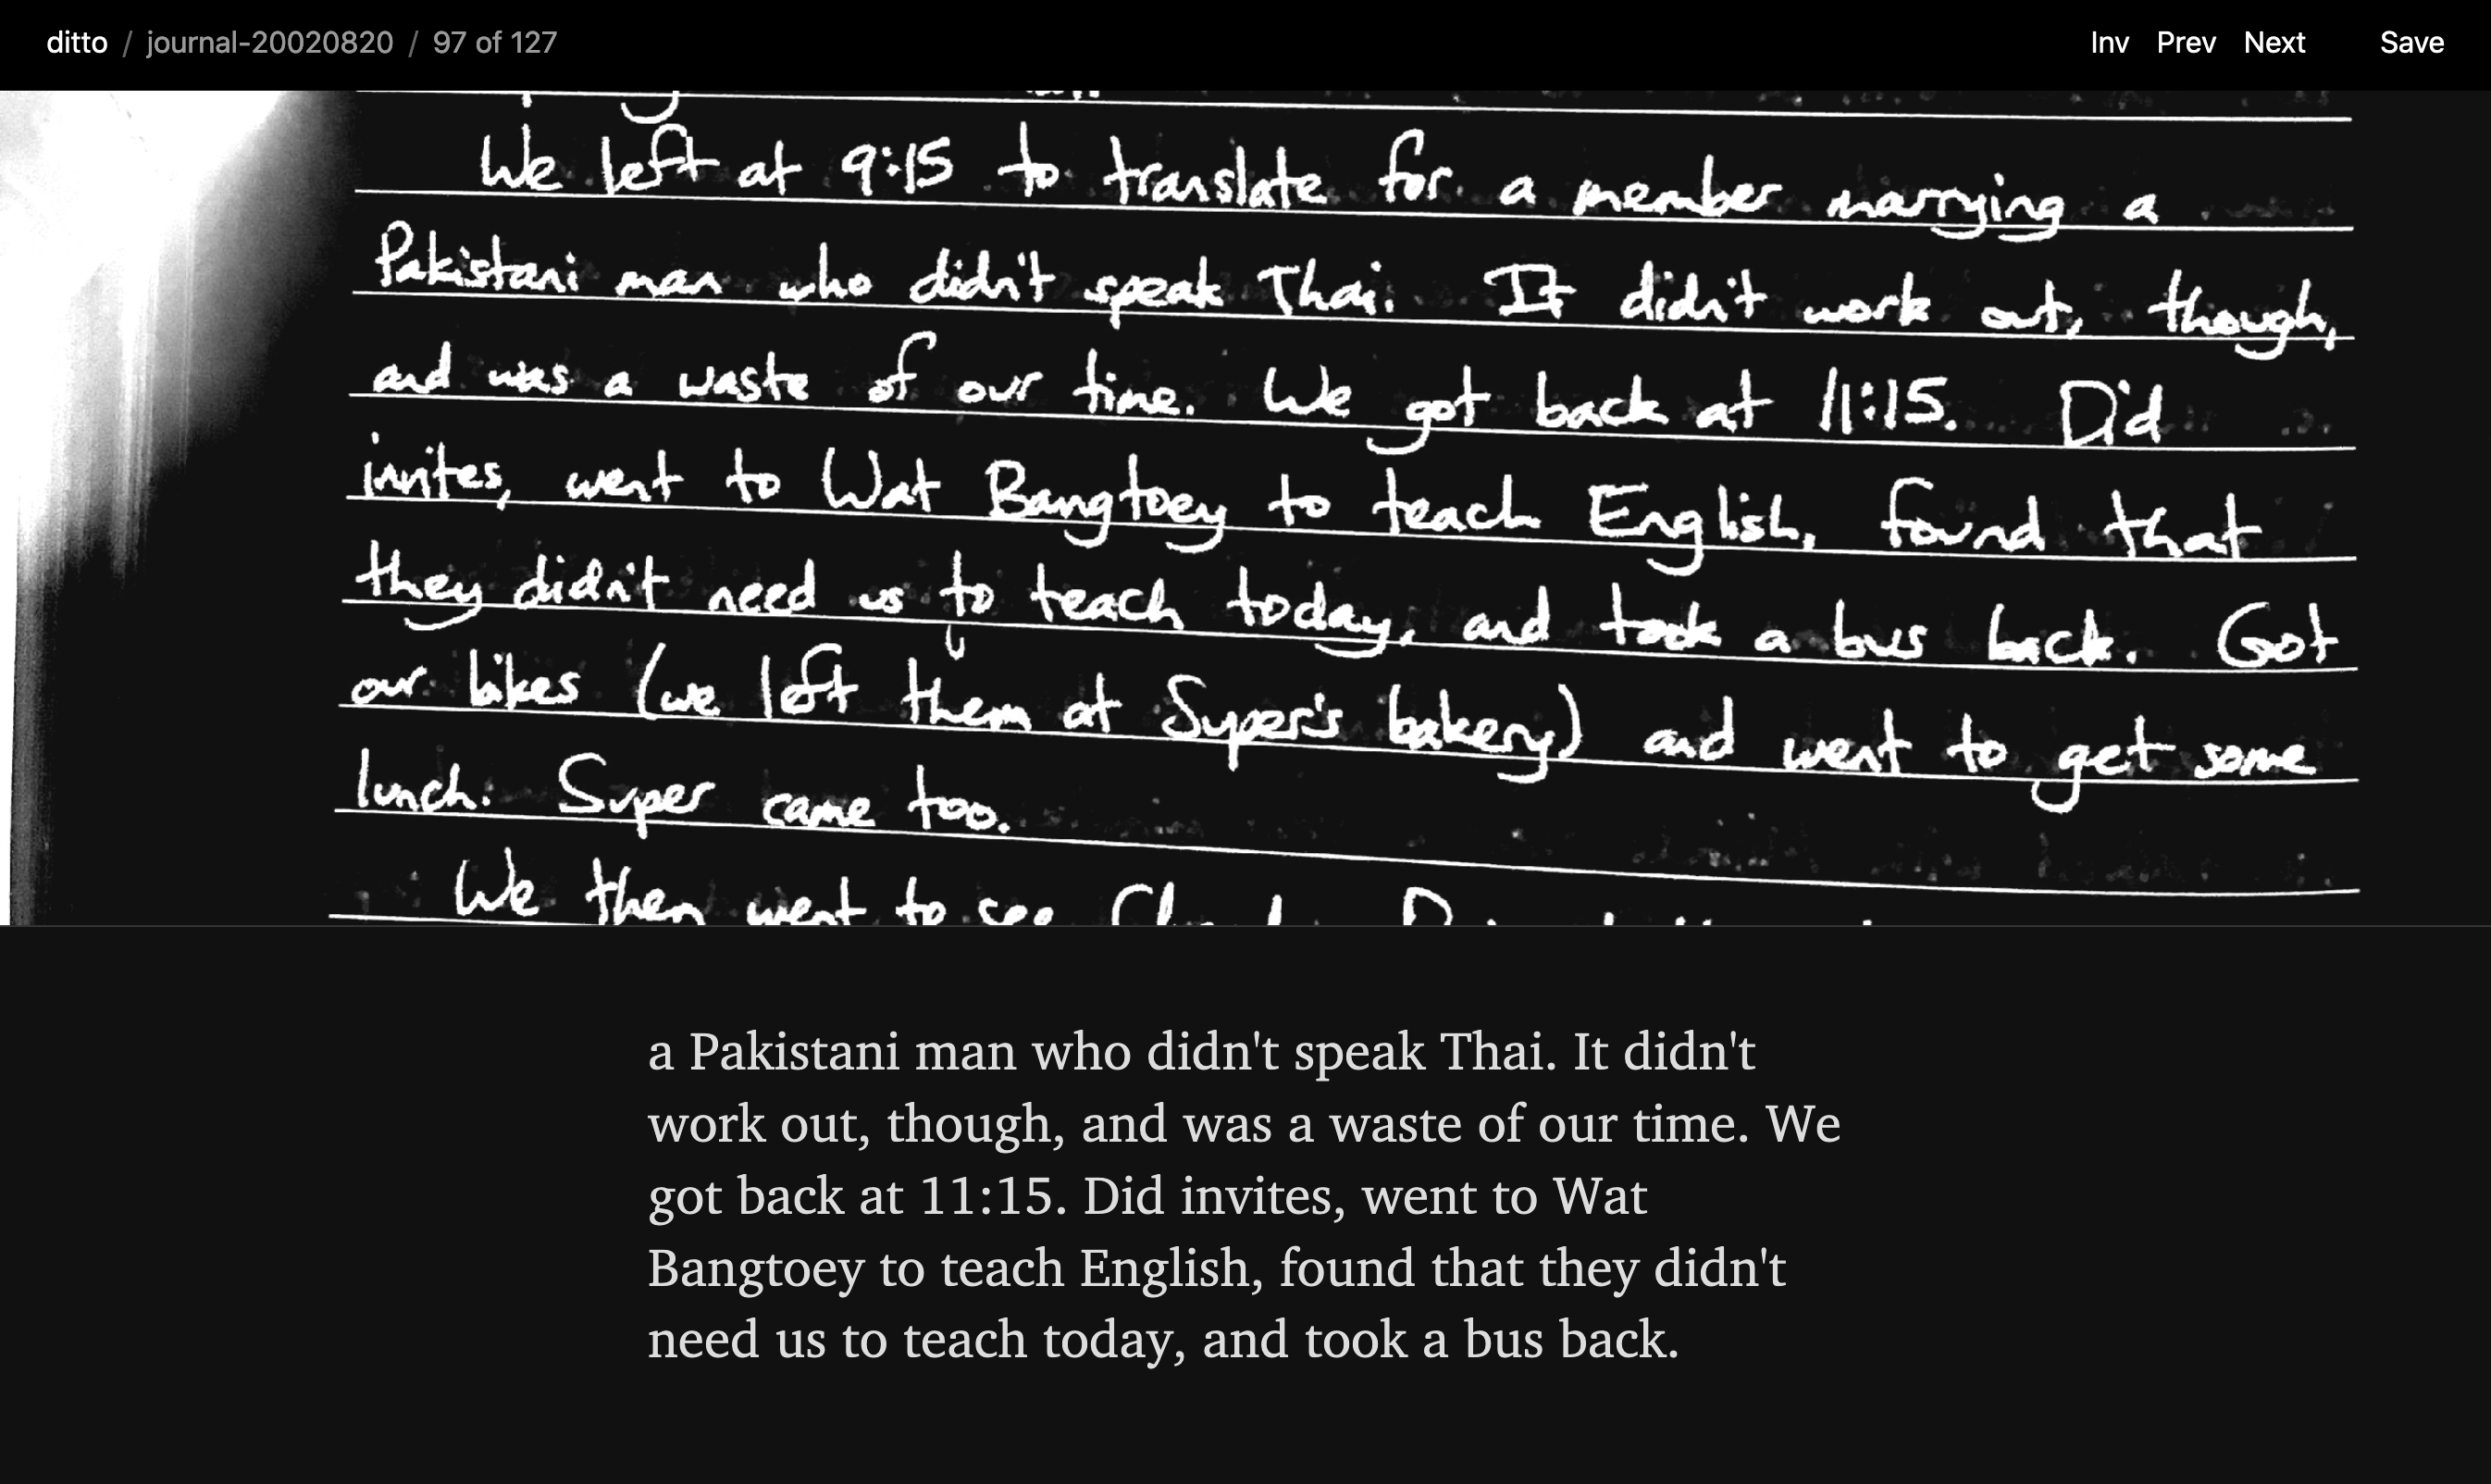 ditto / journal-20020820 / 97 of 127
Inv Prev Next Save
We left at 9:15 to translate for a member marrying a
Pakistani man who didn't speak Thai. It didn't work out, though,
and was a waste of our time. We got back at 11:15. Did
invites, went to Wat Bangtoey to teach English, found that
they didn't need us to teach today, and took a bus back. Got
our bikes (we left them at Super's bakery) and went to get some
lunch. Super came too.
We then went to see
a Pakistani man who didn't speak Thai. It didn't
work out, though, and was a waste of our time. We
got back at 11:15. Did invites, went to Wat
Bangtoey to teach English, found that they didn't
need us to teach today, and took a bus back.